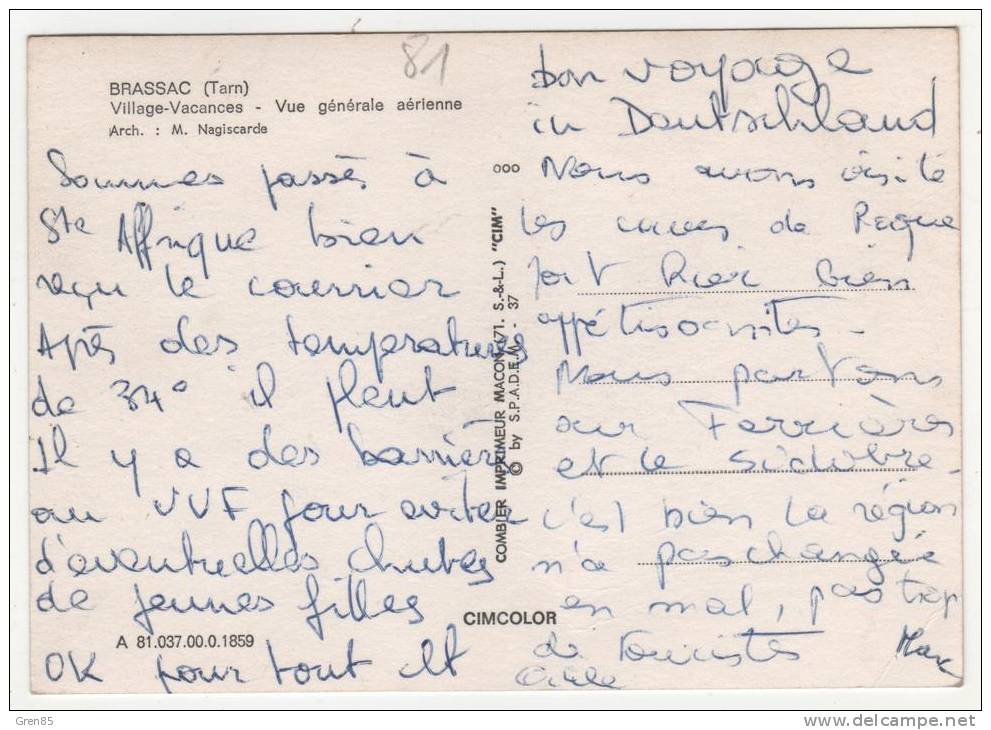 81
BRASSAC (Tarn)
Village-Vacances - Vue générale aérienne
Arch. : M. Nagiscarde
Sommes passés à
Ste Affrique bien
reçu le courrier
Après des temperatures
de 34° il pleut
Il y a des barrières
au VVF pour eviter
d'eventuelles chutes
de jeunes filles
OK pour tout et
A 81.037.00.0.1859
CIMCOLOR
ooo
COMBIER IMPRIMEUR MACON (71. S.-&-L.) "CIM"
© by S.P.A.D.E.M. - 37
bon voyage
in Deutschland
Nous avons visité
les caves de Roque
fort Hier bien
appétissantes -
Nous partons
sur Ferrières
et le Sidobre -
c'est bien la région
n'a pas changée
en mal, pas trop
de touristes
Max
Gren85
http://www.delcampe.net